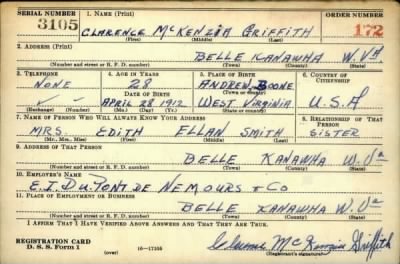 SERIAL NUMBER 1. NAME (Print) ORDER NUMBER
3105 CLARENCE McKENZIA GRIFFITH 172
(First) (Middle) (Last)
2. ADDRESS (Print)
BELLE KANAWHA W. VA
(Number and street or R. F. D. number) (Town) (County) (State)
3. TELEPHONE 4. AGE IN YEARS 5. PLACE OF BIRTH 6. COUNTRY OF CITIZENSHIP
NONE 28 ANDREW, BOONE
DATE OF BIRTH (Town) (County)
APRIL 28 1912 WEST VIRGINIA U.S.A
(Exchange) (Number) (Mo.) (Day) (Yr.) (State or country)
7. NAME OF PERSON WHO WILL ALWAYS KNOW YOUR ADDRESS 8. RELATIONSHIP OF THAT PERSON
MRS. EDITH ELLAN SMITH SISTER
(Mr., Mrs., Miss) (First) (Middle) (Last)
9. ADDRESS OF THAT PERSON
BELLE KANAWHA W. Va
(Number and street or R. F. D. number) (Town) (County) (State)
10. EMPLOYER'S NAME
E. I. DU PONT DE NEMOURS + CO
11. PLACE OF EMPLOYMENT OR BUSINESS
BELLE KANAWHA W. Va
(Number and street or R. F. D. number) (Town) (County) (State)
I AFFIRM THAT I HAVE VERIFIED ABOVE ANSWERS AND THAT THEY ARE TRUE.
REGISTRATION CARD Clarence McKenzia Griffith
D. S. S. Form 1 (over) 16—17105 (Registrant's signature)